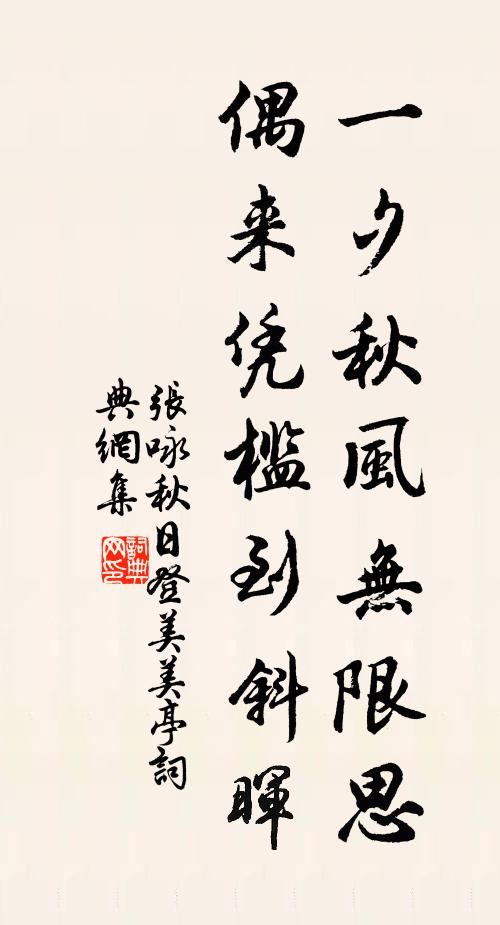 一夕秋風無限思
偶来凭檻到斜暉
張咏秋日登美美亭詞
典網集
詞典
网印